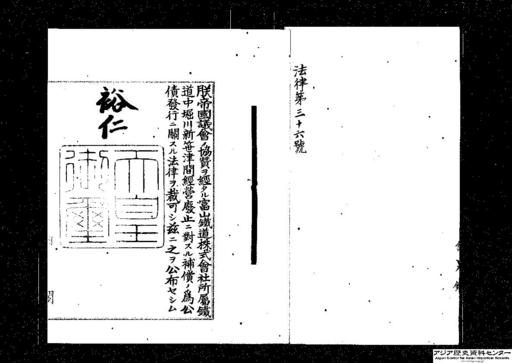 法律第三十六號
朕帝國議會ノ協贊ヲ經タル富山鐵道株式會社所屬鐵
道中堀川新笹津間經營廢止ニ對スル補償ノ爲公
債發行ニ關スル法律ヲ裁可シ茲ニ之ヲ公布セシム
裕仁
天皇
御璽
アジア歴史資料センター
Japan Center for Asian Historical Records